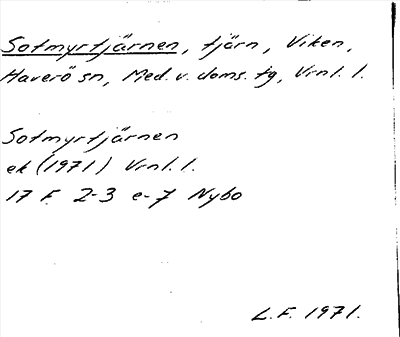 Sotmyrtjärnen, tjärn, Viken,
Haverö sn, Med. v. doms. tg, Vrnl. l.
Sotmyrtjärnen
ek (1971) Vrnl. l.
17 F 2-3 e-7 Nybo
L.F. 1971.